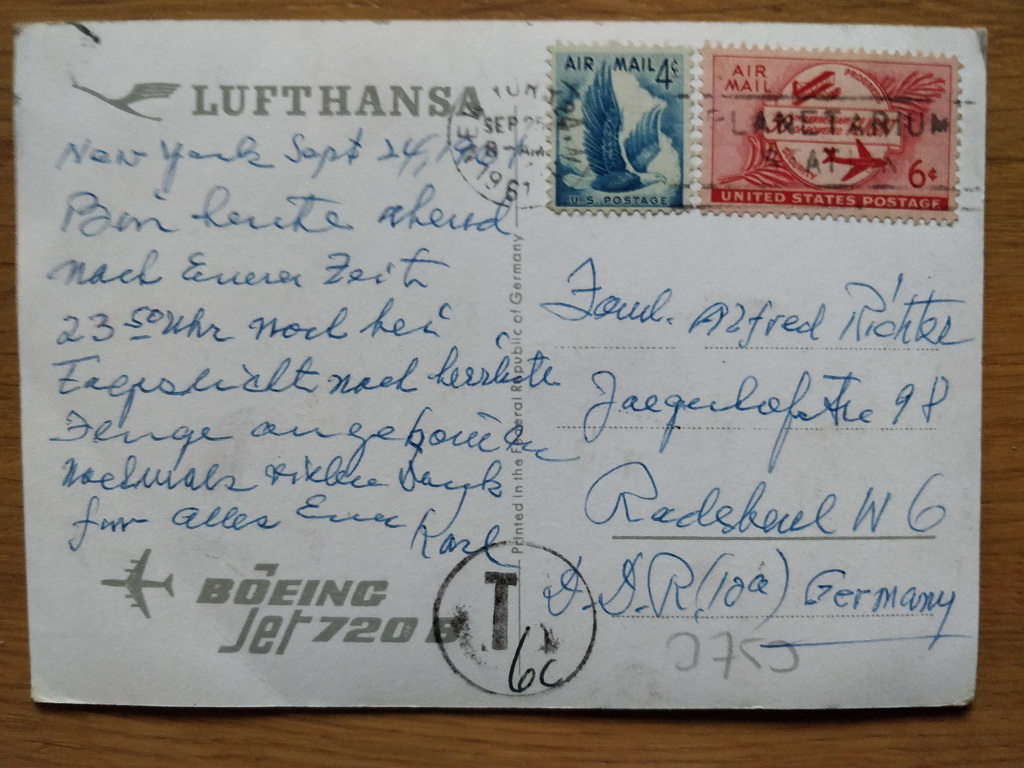 LUFTHANSA
New York Sept 24, 1961
Bin heute abend
nach Eurer Zeit
23 50 Uhr noch bei
Tageslicht nach herrlichem
Fluge angekommen
nochmals vielen Dank
für alles Euer
Karl
BOEING
Jet 720 B
Printed in the Federal Republic of Germany
AIR MAIL 4¢
U.S. POSTAGE
AIR
MAIL
6¢
UNITED STATES POSTAGE
NEW YORK, N.Y.
SEP 25
8 - AM
1961
PLANETARIUM
STATION
Fam. Alfred Richter
Jaegerhofstr 98
Radebeul W 6
D.D.R. (10a) Germany
T
6c